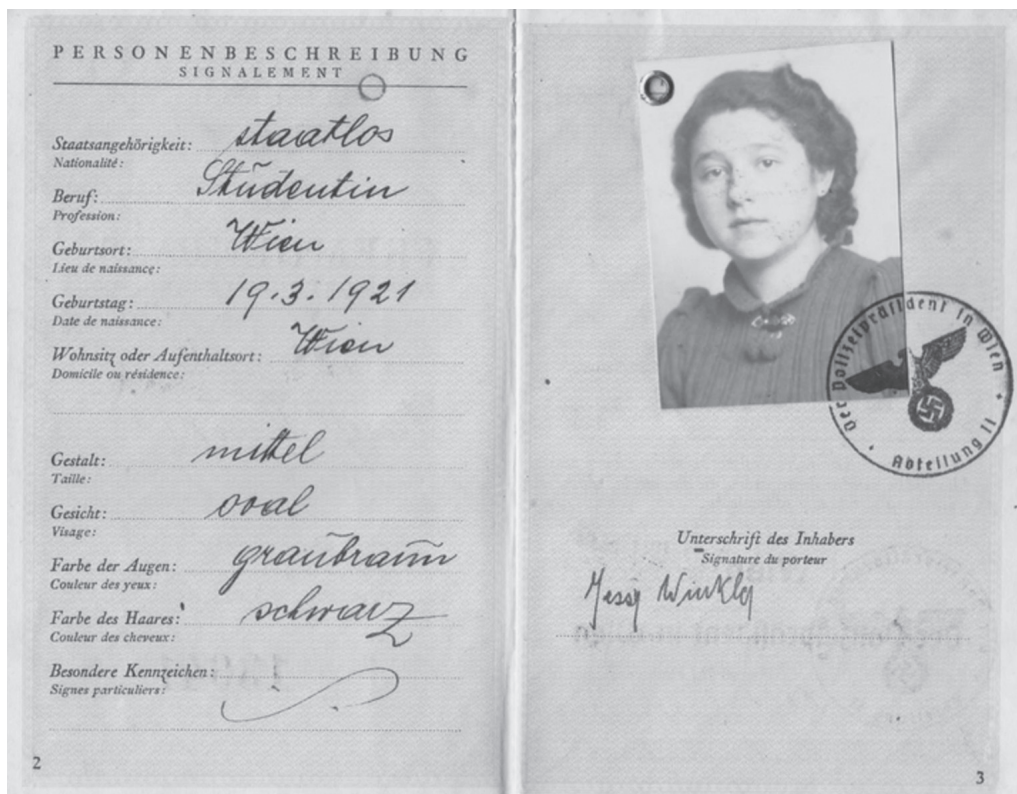 PERSONENBESCHREIBUNG
SIGNALEMENT
Staatsangehörigkeit: staatlos
Nationalité:
Beruf: Studentin
Profession:
Geburtsort: Wien
Lieu de naissance:
Geburtstag: 19.3.1921
Date de naissance:
Wohnsitz oder Aufenthaltsort: Wien
Domicile ou résidence:
Gestalt: mittel
Taille:
Gesicht: oval
Visage:
Farbe der Augen: graubraun
Couleur des yeux:
Farbe des Haares: schwarz
Couleur des cheveux:
Besondere Kennzeichen:
Signes particuliers:
2
Der Polizeipräsident in Wien
Abteilung II
Unterschrift des Inhabers
Signature du porteur
Winkler
3